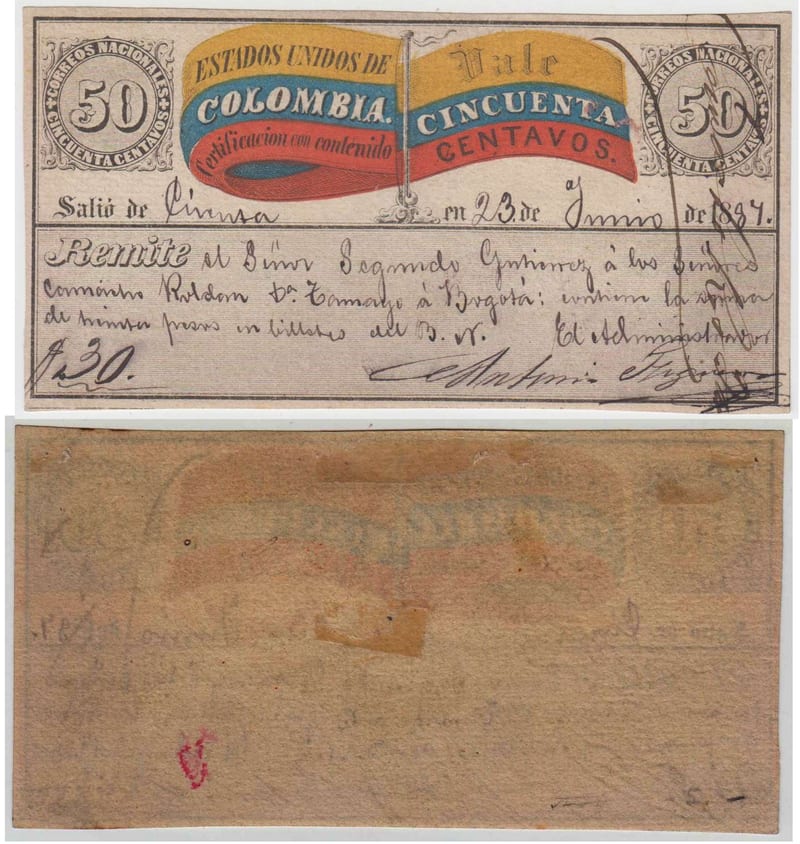 CORREOS NACIONALES
50
CINCUENTA CENTAVOS
ESTADOS UNIDOS DE
COLOMBIA.
Certificacion con contenido
Vale
CINCUENTA
CENTAVOS.
CORREOS NACIONALES
50
CINCUENTA CENTAVOS
Salió de en 23 de Junio de 1887.
Remite el Señor Segundo Gutierrez á los Señores
Camacho Roldan Tamayo á Bogotá: contiene la suma
de treinta pesos en billetes del B. N. El Administrador
$ 30.
Antonio